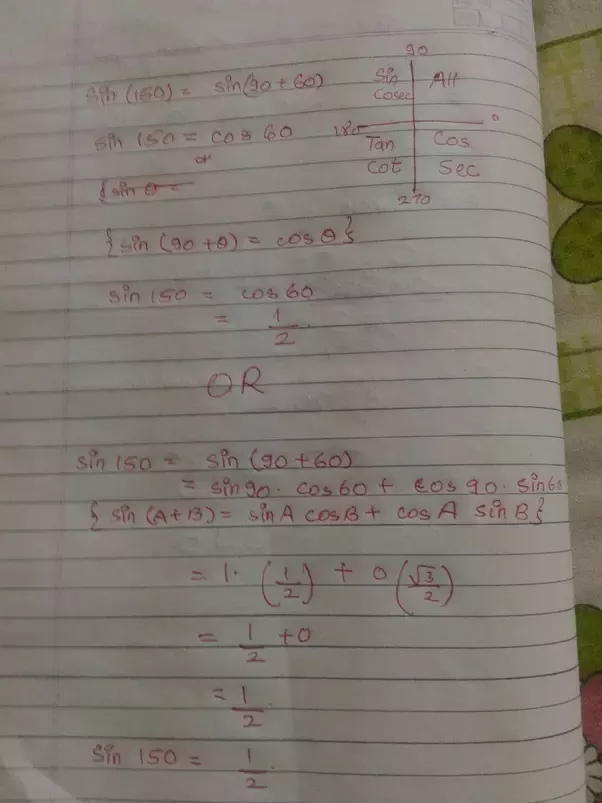 90
sin (150) = sin(90 + 60)
Sin All
Cosec
0
sin 150 = cos 60
180
Tan Cos
or
Cot Sec
{sin θ =
270
{sin (90 + θ) = cos θ}
sin 150 = cos 60
= 1/2
OR
sin 150 = sin (90 + 60)
= sin 90 · cos 60 + cos 90 · sin 60
{ sin (A + B) = sin A cos B + cos A sin B}
= 1 · (1/2) + 0 (√3/2)
= 1/2 + 0
= 1/2
sin 150 = 1/2